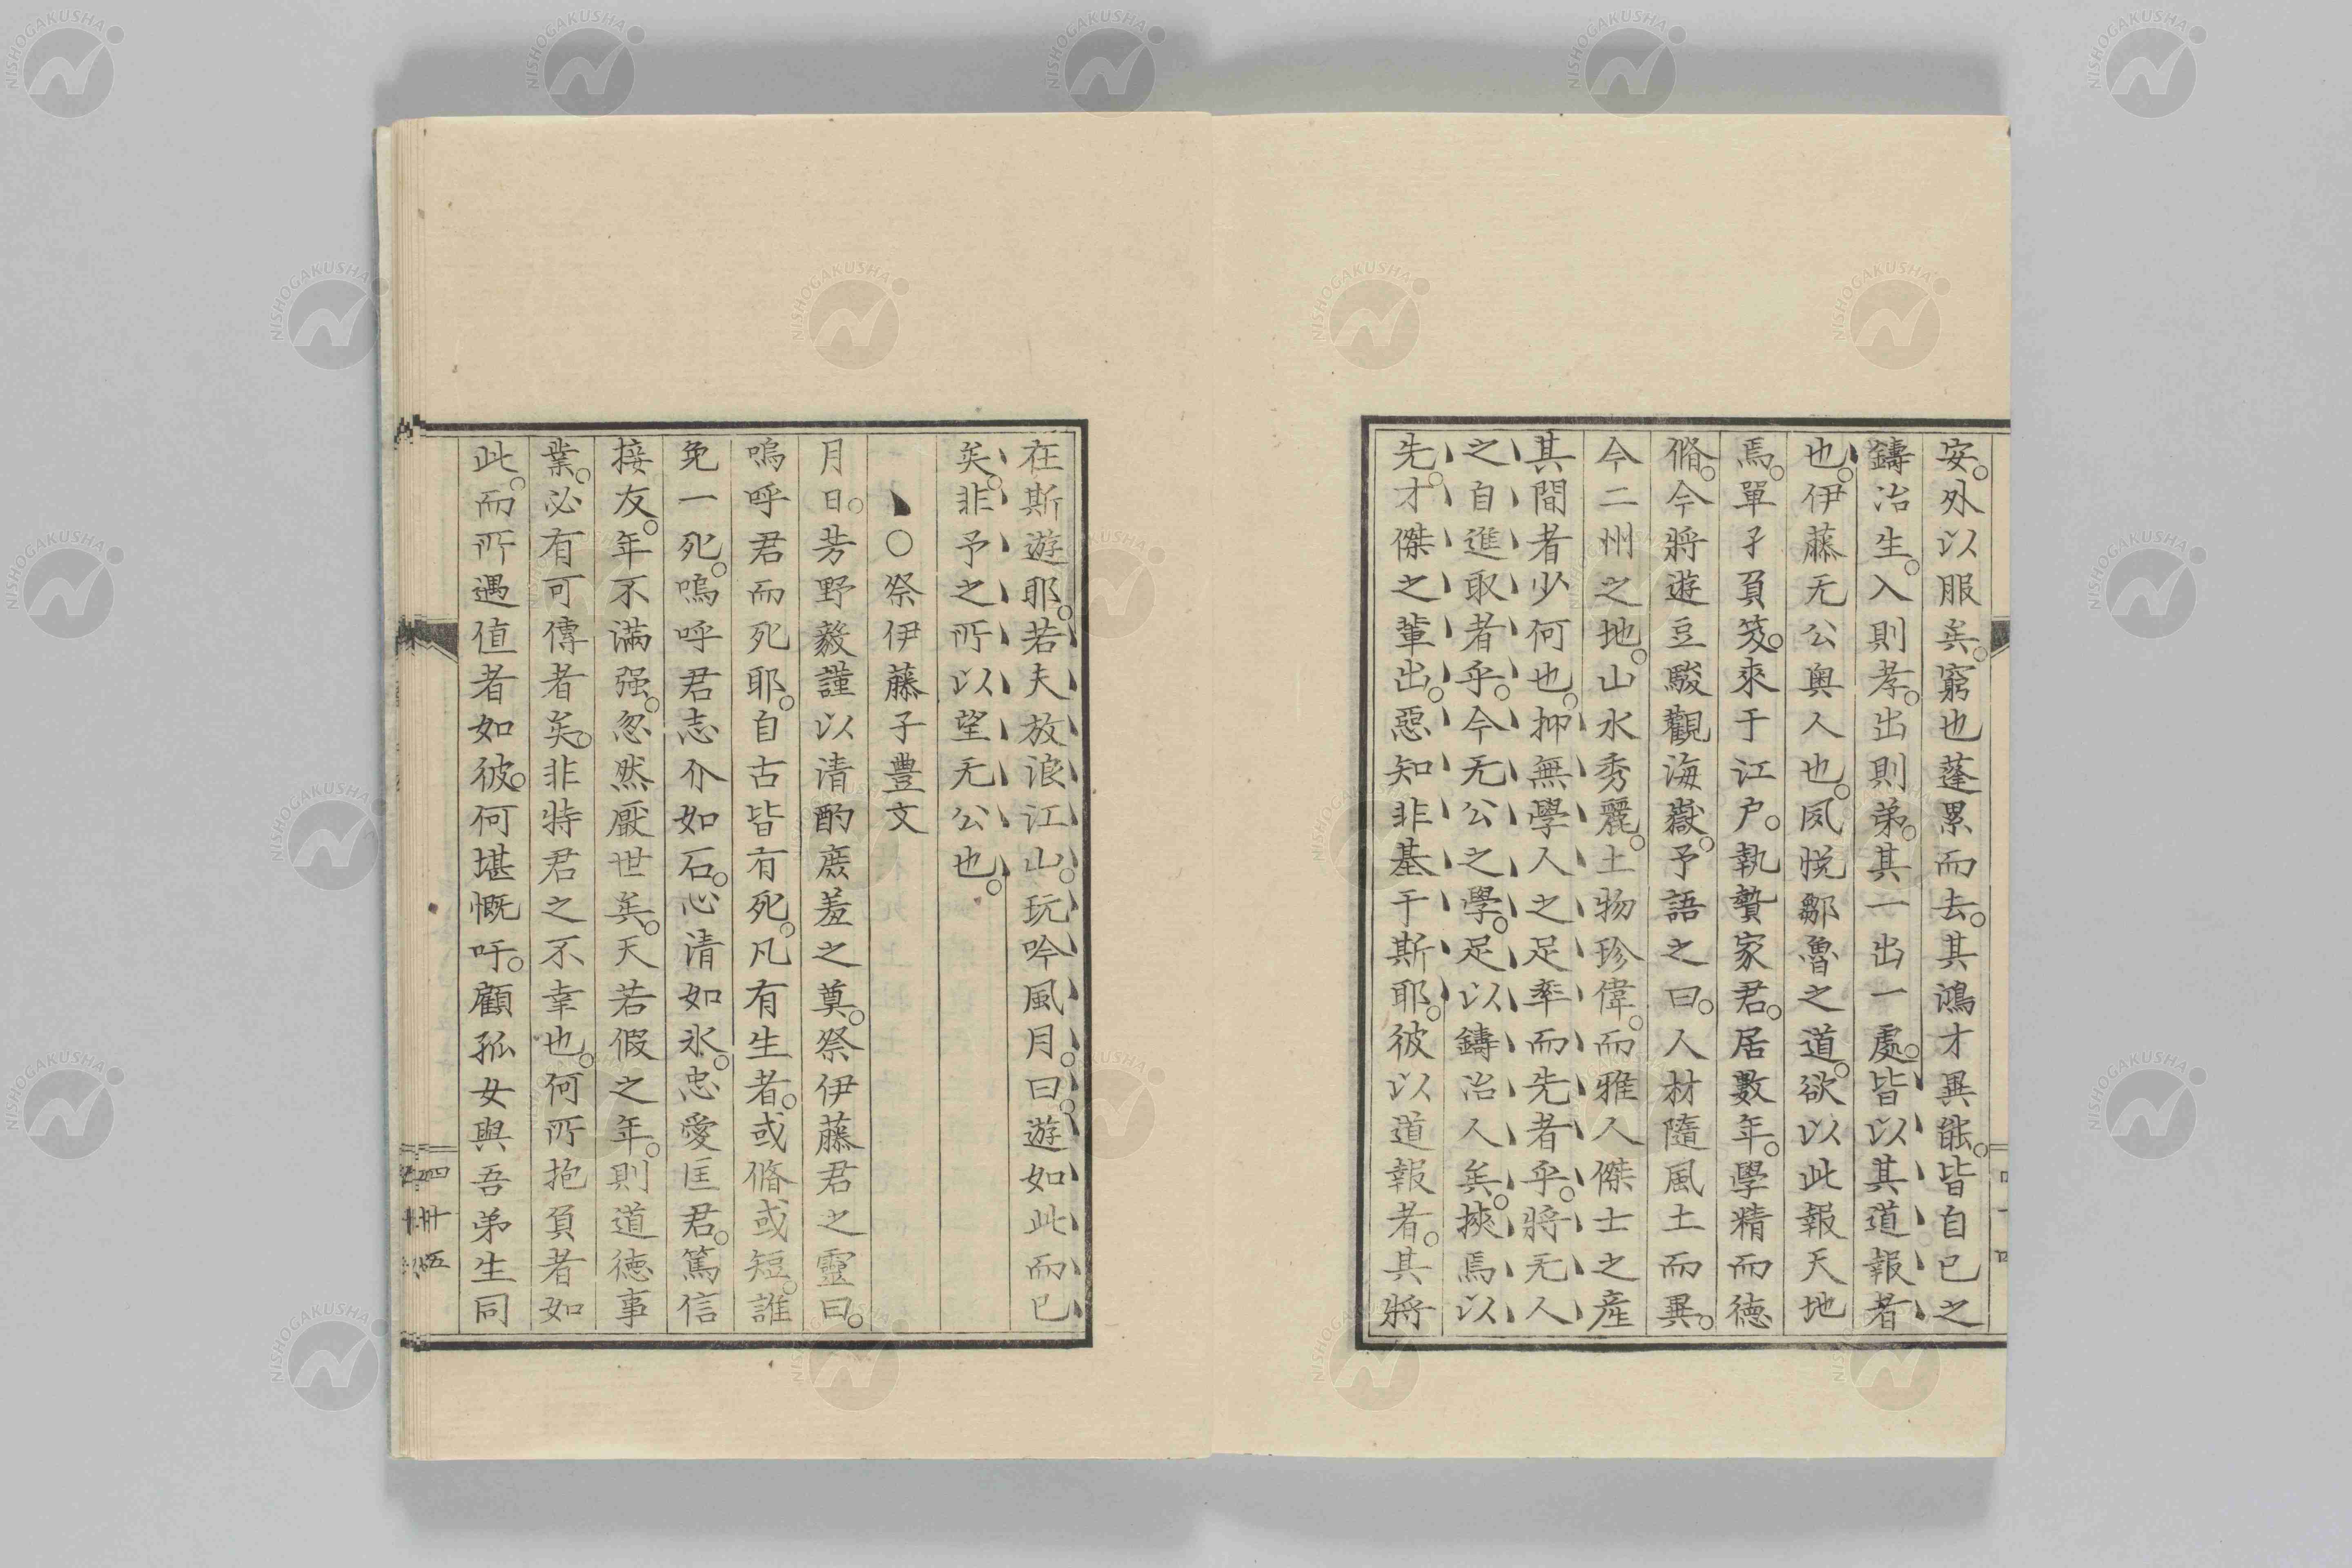 安。外以服矣。窮也蓬累而去。其鴻才異能。皆自已之
鑄冶生。入則孝。出則弟。其一出一處。皆以其道報者
也。伊藤无公奥人也。夙悦鄒魯之道。欲以此報天地
焉。單孑負笈。來于江戸。執贄家君。居數年。學精而徳
脩。今將遊豆駿觀海嶽。予語之曰。人材隨風土而異。
今二州之地。山水秀麗。土物珍偉。而雅人傑士之産
其間者少何也。抑無學人之足率而先者乎。將无人
之自進取者乎。今无公之學。足以鑄冶人矣。挾焉以
先。才傑之輩出。惡知非基于斯耶。彼以道報者。其將
在斯遊耶。若夫放浪江山。玩吟風月。曰遊如此而已
矣。非予之所以望无公也。
○祭伊藤子豊文
月日。芳野毅謹以清酌庶羞之奠。祭伊藤君之靈曰。
嗚呼君而死耶。自古皆有死。凡有生者。或脩或短。誰
免一死。嗚呼君志介如石。心清如氷。忠愛匡君。篤信
接友。年不滿强。忽然厭世矣。天若假之年。則道徳事
業。必有可傳者矣。非特君之不幸也。何所抱負者如
此。而所遇値者如彼。何堪慨吁。顧孤女與吾弟生同
四十五
NISHOGAKUSHA